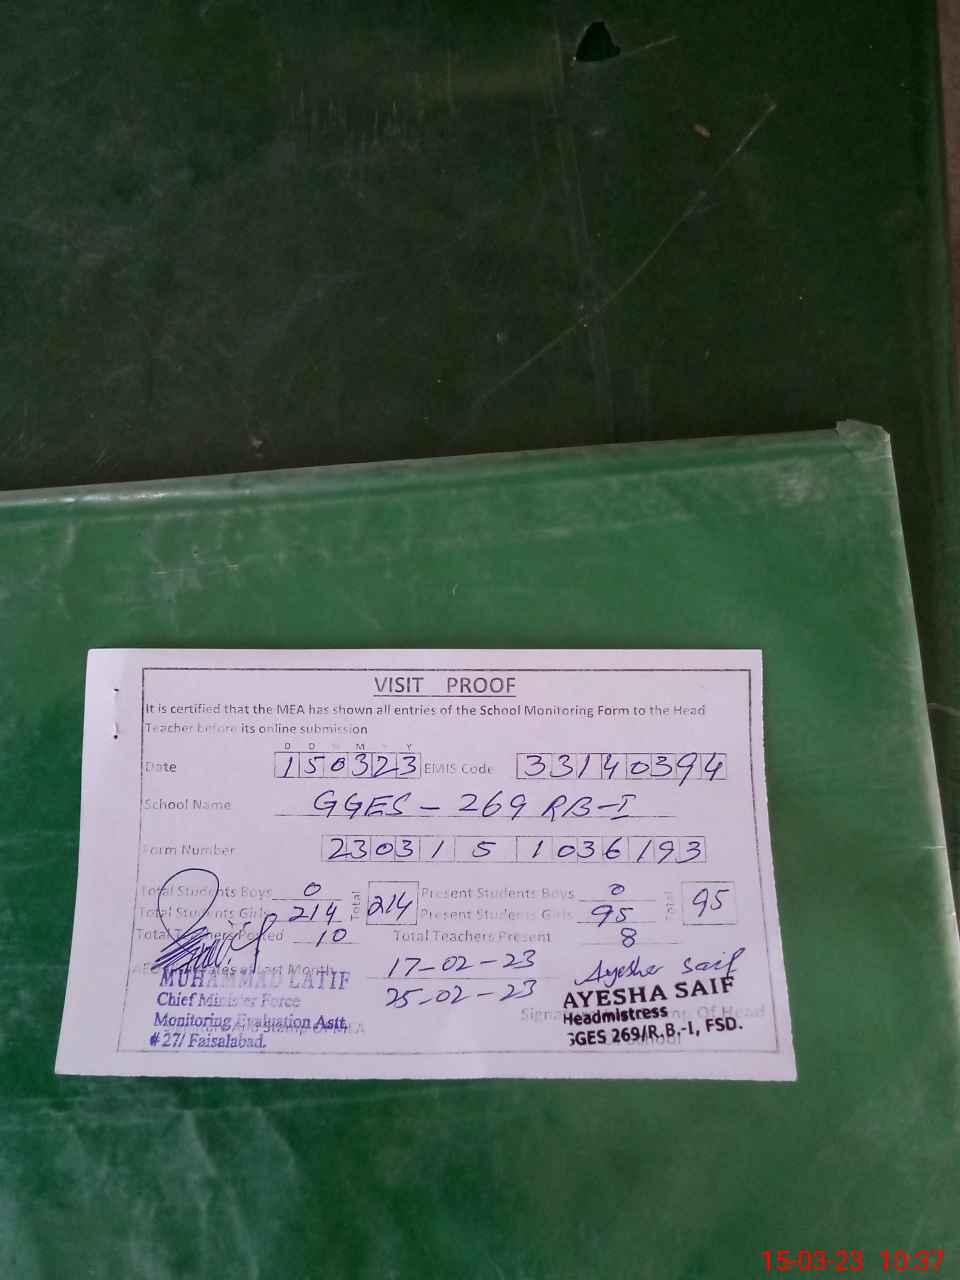 VISIT PROOF
It is certified that the MEA has shown all entries of the School Monitoring Form to the Head
Teacher before its online submission
D D M M Y Y
Date 150323 EMIS Code 33140394
School Name GGES - 269 RB-I
Form Number 2303 1 5 1 036193
Total Students Boys 0 Total 214 Present Students Boys 0 Total 95
Total Students Girls 214 Present Students Girls 95
Total Teachers Posted 10 Total Teachers Present 8
Dates of Last Month 17-02-23
25-02-23
Ayesha Saif
MUHAMMAD LATIF
Chief Minister Force
Monitoring Evaluation Astt.
# 27/ Faisalabad.
AYESHA SAIF
Headmistress
GGES 269/R.B.-I, FSD.
Of Head
School
15-03-23 10:37